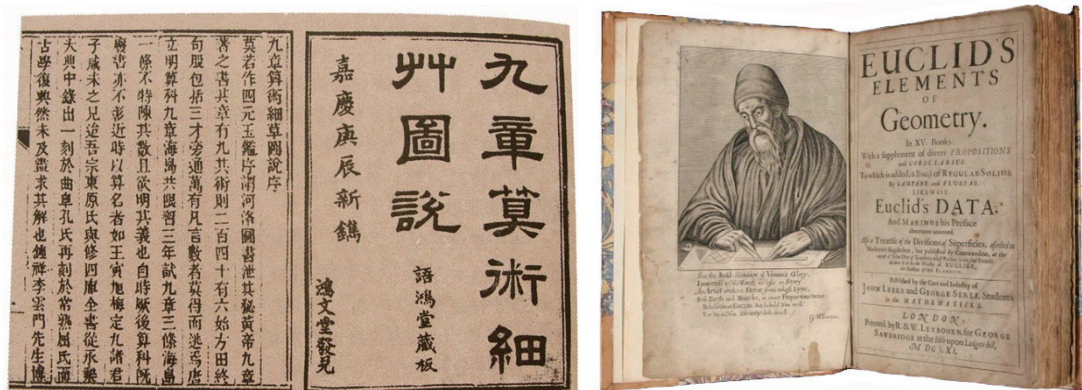 九章算術細
艸圖說
語鴻堂藏板
嘉慶庚辰新鐫
鴻文堂發兌
九章算術細草圖說序
莫若作四元玉鑑序謂河洛圖書泄其秘黃帝九章
著之書其章有九其術則二百四十有六始方田終
句股包括三才旁通萬有凡言數者莫得而逃焉唐
立明算科九章海島共限習三年試九章三條海島
一條不特陳其數且欲明其義也自時厥後算科既
廢書亦不彰近時以算名者如王寅旭梅定九諸君
子咸未之見迨吾宗東原氏與修四庫全書從永樂
大典中錄出一刻於曲阜孔氏再刻於常熟屈氏而
古學復興然未及盡求其解也鍾祥李雲門先生博
EUCLID'S
ELEMENTS
OF
Geometry.
In XV. Books:
With a supplement of divers PROPOSITIONS
and COROLLARIES.
To which is added, a Treatise of REGULAR SOLIDS
By CAMPANE and FLUSSAS.
LIKEWISE
Euclid's DATA:
And MARINUS his Preface
thereunto annexed.
Also a Treatise of the Divisions of Superficies, ascribed to
Published by the Care and Industry of
JOHN LEEKE and GEORGE SERLE, Students
in the MATHEMATICKS.
LONDON:
Printed by R. & W. LEYBOURN, for GEORGE
SAWBRIDGE at the Bible upon Ludgate-hill,